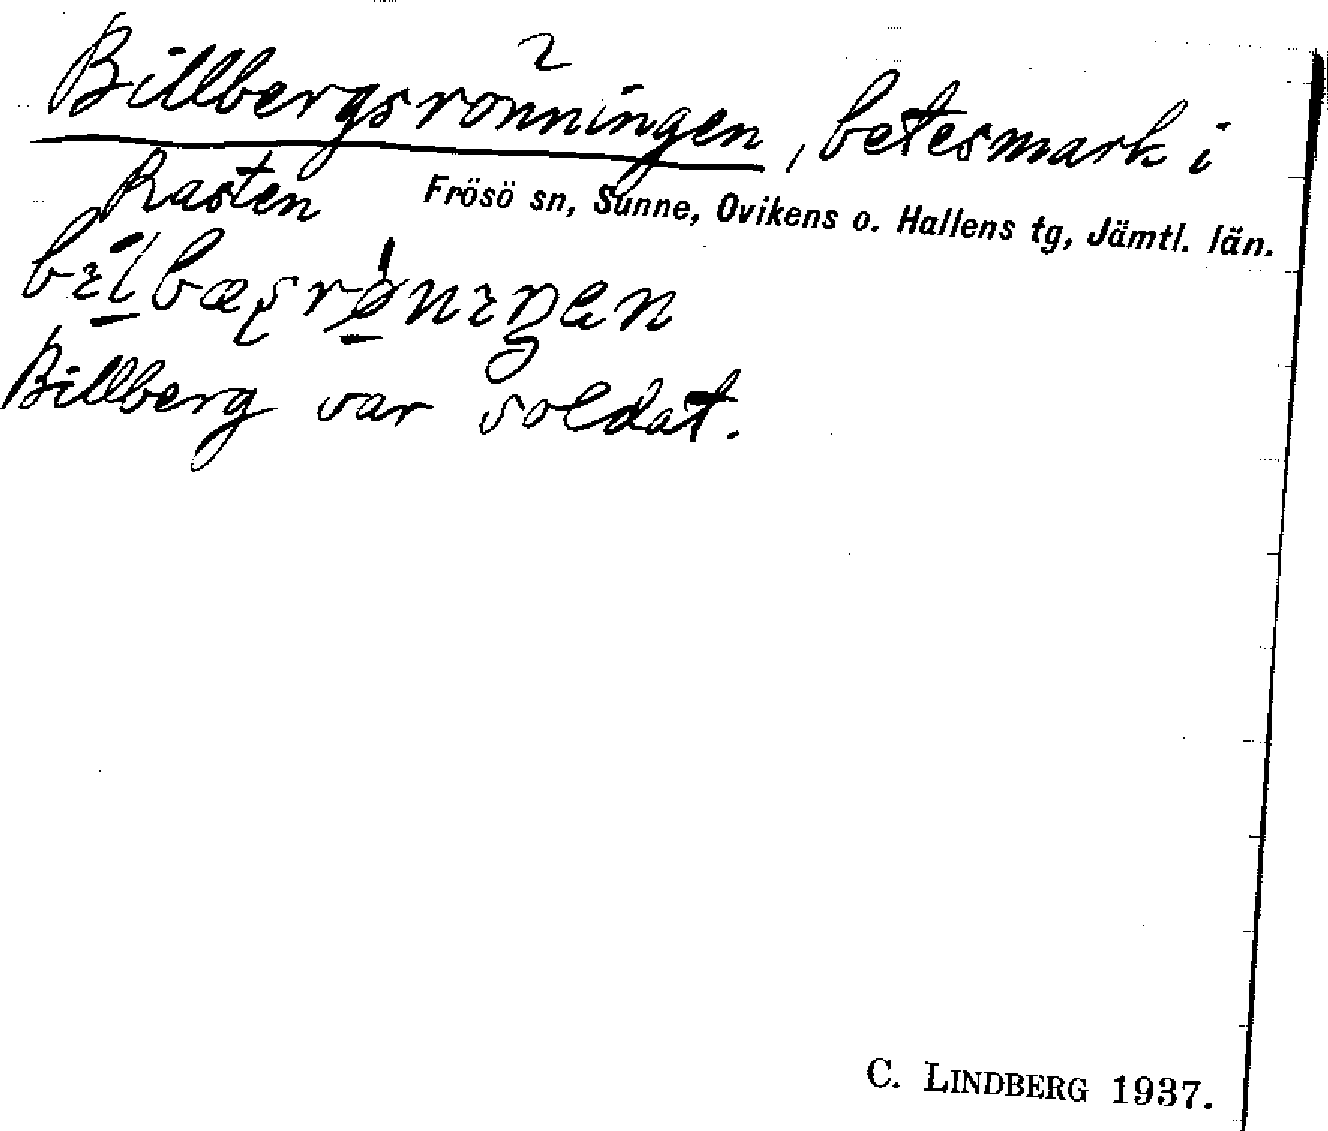 Billbergsrönningen, betesmark i
Rasten Frösö sn, Sunne, Ovikens o. Hallens tg, Jämtl. län.
Billberg var soldat.
C. LINDBERG 1937.